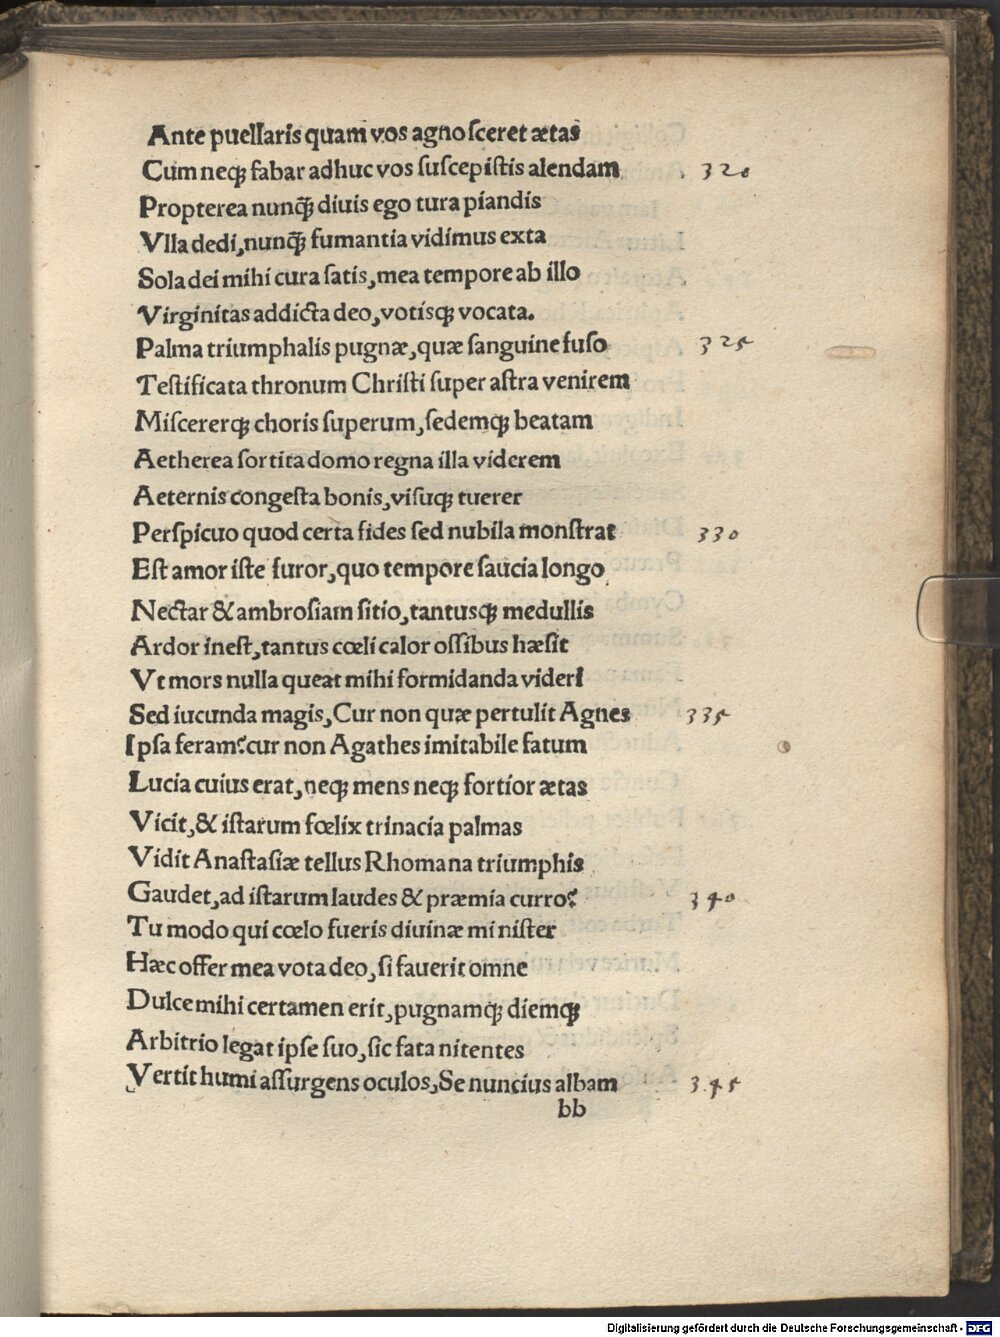 Ante puellaris quam vos agnosceret ætas
Cum neqꝫ fabar adhuc vos suscepistis alendam 320
Propterea nunq̃ꝫ diuis ego tura piandis
Vlla dedi, nunq̃ꝫ fumantia vidimus exta
Sola dei mihi cura satis, mea tempore ab illo
Virginitas addicta deo, votisqꝫ vocata.
Palma triumphalis pugnæ, quæ sanguine fuso 325
Testificata thronum Christi super astra venirem
Miscererqꝫ choris superum, sedemqꝫ beatam
Aetherea sortita domo regna illa viderem
Aeternis congesta bonis, visuqꝫ tuerer
Perspicuo quod certa fides sed nubila monstrat 330
Est amor iste furor, quo tempore saucia longo
Nectar & ambrosiam sitio, tantusqꝫ medullis
Ardor inest, tantus cœli calor ossibus hæsit
Vt mors nulla queat mihi formidanda videri
Sed iucunda magis, Cur non quæ pertulit Agnes 335
Ipsa feram? cur non Agathes imitabile fatum
Lucia cuius erat, neqꝫ mens neqꝫ fortior ætas
Vicit, & istarum fœlix trinacia palmas
Vidit Anastasiæ tellus Rhomana triumphis
Gaudet, ad istarum laudes & præmia curro? 340
Tu modo qui cœlo fueris diuinæ minister
Hæc offer mea vota deo, si fauerit omne
Dulce mihi certamen erit, pugnamqꝫ diemqꝫ
Arbitrio legat ipse suo, sic fata nitentes
Vertit humi assurgens oculos, Se nuncius albam 345
bb
Digitalisierung gefördert durch die Deutsche Forschungsgemeinschaft - DFG